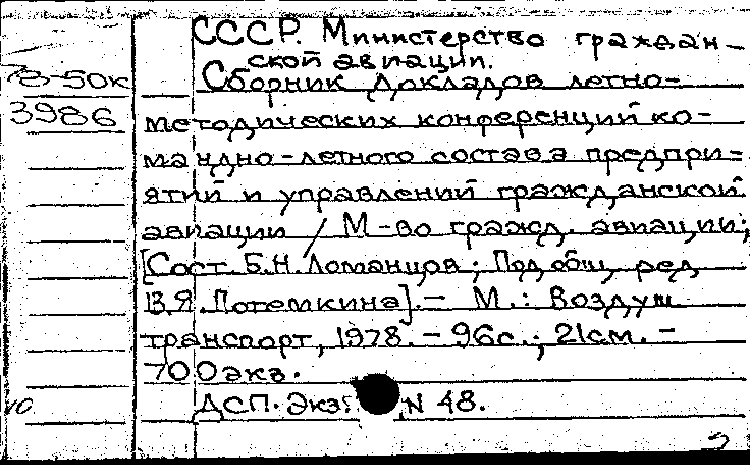 СССР. Министерство граждан-
ской авиации.
78-50к
Сборник докладов летно-
3986
методических конференций ко-
мандно-летного состава предпри-
ятий и управлений гражданской
авиации / М-во гражд. авиации;
[Сост. Б.Н. Ломанцов; Под общ. ред.
В.Я. Потемкина]. - М.: Воздуш.
транспорт, 1978. - 96с.; 21см. -
700экз.
ДСП. Экз. N 48.